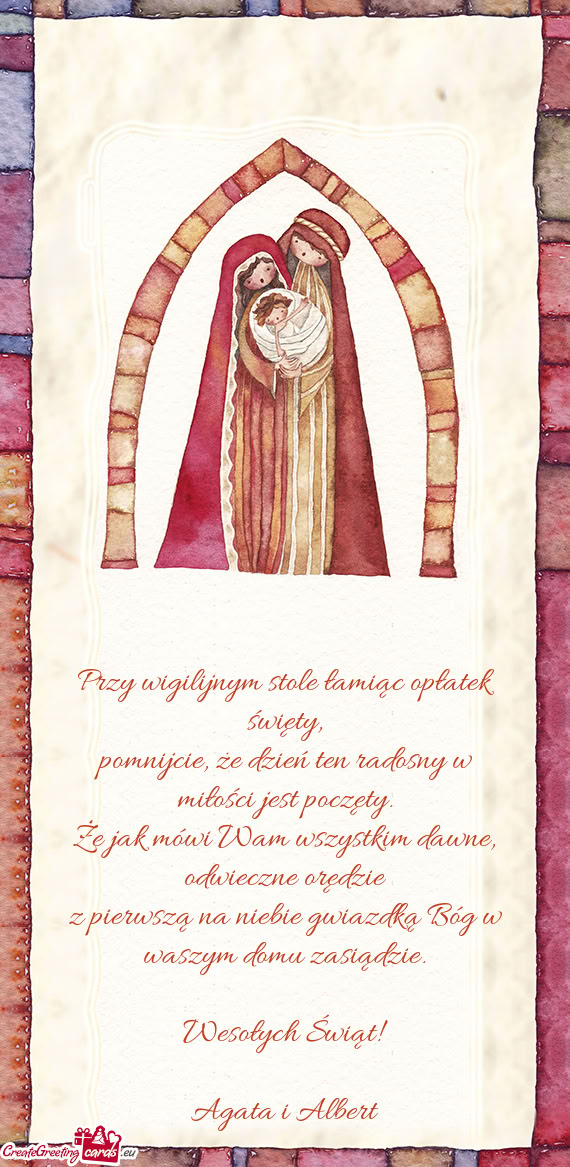 Przy wigilijnym stole łamiąc opłatek
święty,
pomnijcie, że dzień ten radosny w
miłości jest poczęty.
Że jak mówi Wam wszystkim dawne,
odwieczne orędzie
z pierwszą na niebie gwiazdką Bóg w
waszym domu zasiądzie.
Wesołych Świąt!
Agata i Albert
CreateGreeting cards .eu